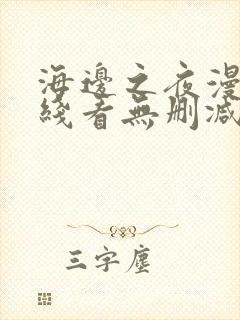 海邊之夜漫
綫看無刪減
三字塵